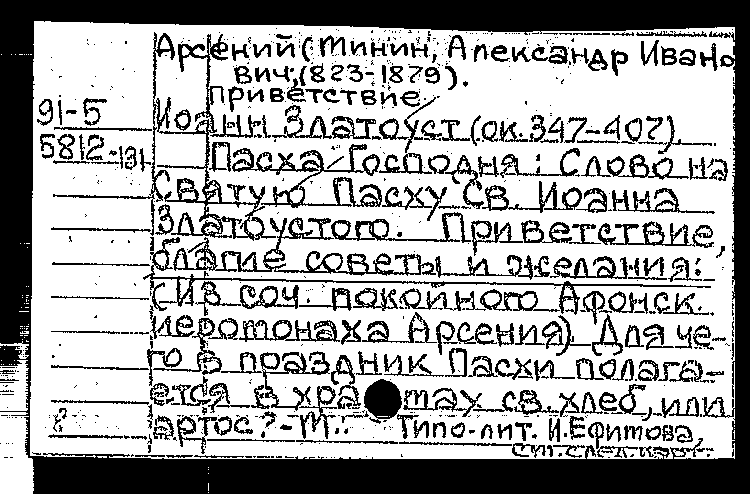 Арсений (Минин, Александр Ивано
вич, (823-1879).
приветствие
91-5 Иоанн Златоуст (ок. 347-407).
5812-131 Пасха Господня: Слово на
Святую Пасху Св. Иоанна
Златоустого. Приветствие,
благие советы и желания:
(Из соч. покойного Афонск.
иеромонаха Арсения) Для че-
го в праздник Пасхи полага-
ется в храмах св. хлеб, или
артос? - М.: Типо-лит. И. Ефимова,
см. след. карт.